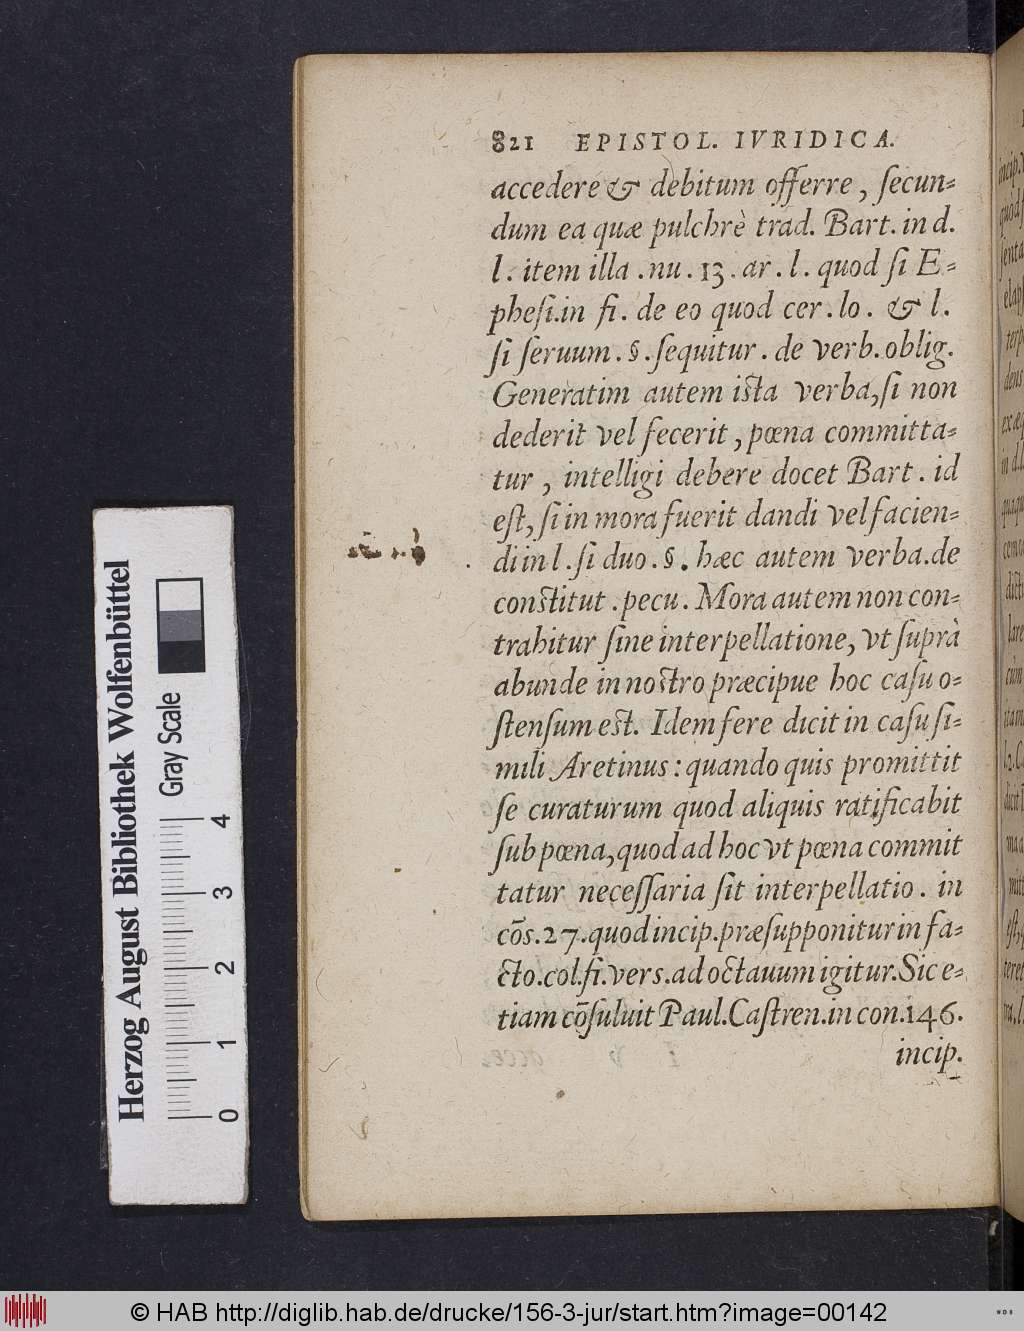 821 EPISTOL. IVRIDICA.
accedere & debitum offerre, ſecun-
dum ea quæ pulchrè trad. Bart. in d.
l. item illa. nu. 13. ar. l. quod ſi E-
pheſi. in fi. de eo quod cer. lo. & l.
ſi ſeruum. §. ſequitur. de verb. oblig.
Generatim autem iſta verba, ſi non
dederit vel fecerit, pœna committa-
tur, intelligi debere docet Bart. id
eſt, ſi in mora fuerit dandi vel facien-
di in l. ſi duo. §. hæc autem verba. de
conſtitut. pecu. Mora autem non con-
trahitur ſine interpellatione, vt ſuprà
abunde in noſtro præcipue hoc caſu o-
ſtenſum eſt. Idem fere dicit in caſu ſi-
mili Aretinus: quando quis promittit
ſe curaturum quod aliquis ratificabit
ſub pœna, quod ad hoc vt pœna commit
tatur neceſſaria ſit interpellatio. in
cõs. 27. quod incip. præſupponitur in fa-
cto. col. fi. verſ. ad octauum igitur. Sic e-
tiam cõſuluit Paul. Caſtren. in con. 146.
incip.
Herzog August Bibliothek Wolfenbüttel
Gray Scale
0 1 2 3 4
© HAB http://diglib.hab.de/drucke/156-3-jur/start.htm?image=00142